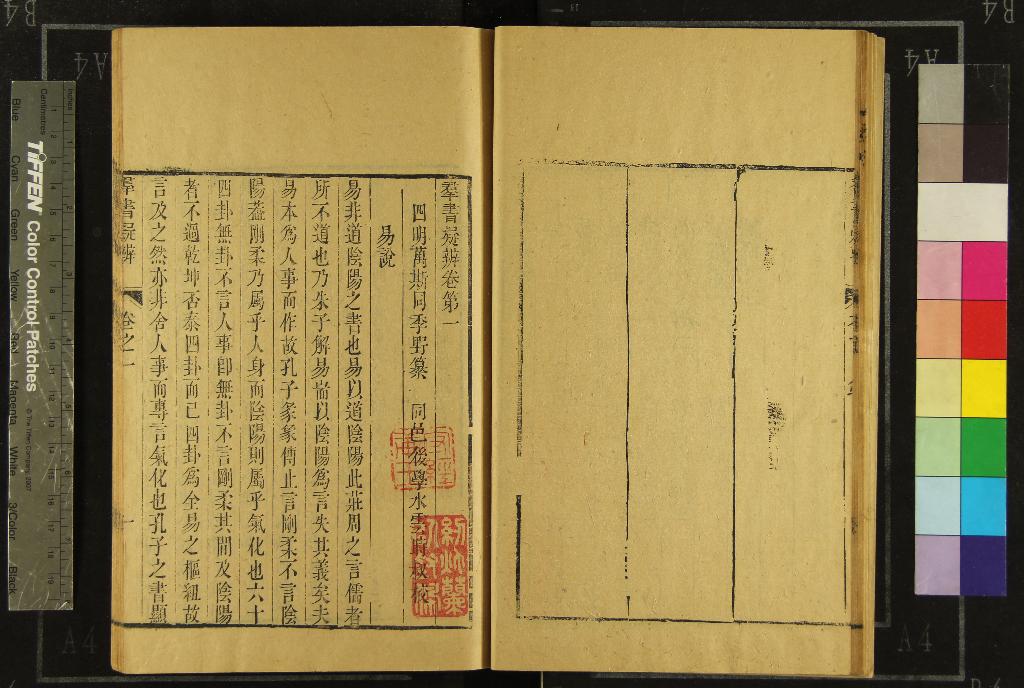 羣書疑辨卷第一
四明萬斯同季野纂　同邑後學水雲 校
易說
易非道陰陽之書也易以道陰陽此莊周之言儒者
所不道也乃朱子解易耑以陰陽爲言失其義矣夫
易本爲人事而作故孔子彖象傳止言剛柔不言陰
陽蓋剛柔乃屬乎人身而陰陽則屬乎氣化也六十
四卦無卦不言人事卽無卦不言剛柔其間及陰陽
者不過乾坤否泰四卦而已四卦爲全易之樞紐故
言及之然亦非舍人事而專言氣化也孔子之書顯
羣書疑辨
卷之一
一
TIFFEN Color Control Patches
© The Tiffen Company, 2007
Centimetres
Inches
Blue
Cyan
Green
Yellow
Red
Magenta
White
3/Color
Black
B4
A4
A4
B4
A4
A4